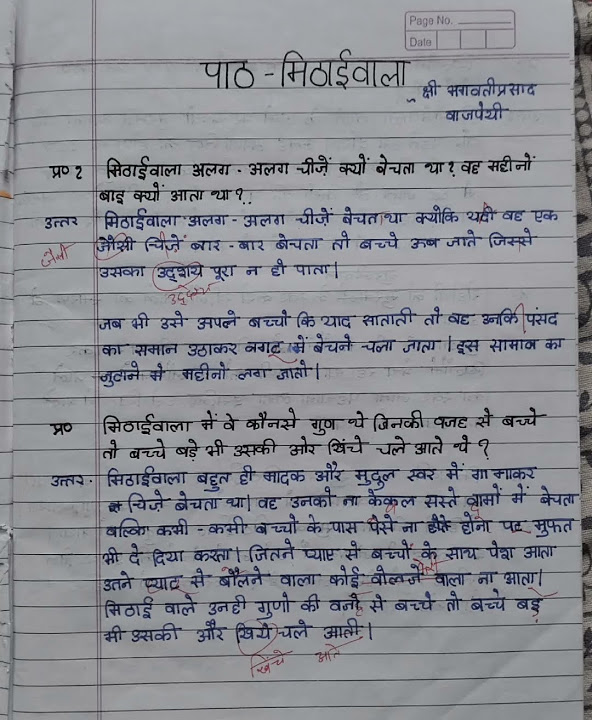 Page No.
Date
पाठ - मिठाईवाला
श्री भगवतीप्रसाद
वाजपेयी
प्र० १ मिठाईवाला अलग - अलग चीज़ें क्यों बेचता था? वह महीनों
बाद क्यों आता था?
उत्तर मिठाईवाला अलग - अलग चीज़ें बेचता था क्योकि यदी वह एक
जैसी चिज़े बार - बार बेचता तो बच्चे ऊब जाते जिससे
जैसी
उसका उद्शये पूरा न हो पाता।
उद्देश्य
जब भी उसे अपने बच्चो कि याद साताती तो वह उनकि पंसद
का समान उठाकर नगर में बेचने चला जाता। इस सामान का
जुटाने मे महीनो लग जाते।
प्र० मिठाईवाला में वे कौनसे गुण थे जिनकी वजह से बच्चे
तो बच्चे बड़े भी उसकी ओर खिंचे चले आते थे?
उत्तर. मिठाईवाला बहुत ही मादक और मृदुल स्वर में गा गाकर
चिज़े बेचता था। वह उनको ना केवल सस्ते दामों में बेचता
बल्कि कभी - कभी बच्चो के पास पैसे ना होने पर मुफत
भी दे दिया करता। जितने प्यार से बच्चों के साथ पेश आता
उतने प्यार से बोलने वाला कोई वाला ना आता।
मिठाई वाले उनही गुणो की वजह से बच्चे तो बच्चे बड़े
भी उसकी और खिचे चले आती।
खिंचे आते